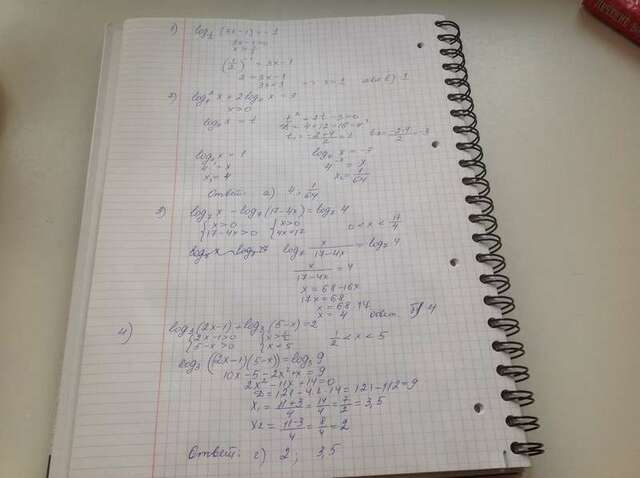 1) log½ (3x-1) = -1
3x-1>0
(1/2)⁻¹ = 3x-1
2 = 3x-1
3x=3 => x=1 ответ b) 1
2) log₄² x + 2 log₄ x = 3
x>0
log₄ x = t t² + 2t - 3 = 0
D = 4+12 = 16 = 4²
t₁ = -2+4/2 = 1 t₂ = -2-4/2 = -3
log₄ x = 1 log₄ x = -3
4¹ = x 4⁻³ = x
x₁ = 4 x₂ = 1/64
Ответ: а) 4; 1/64
3) log₇ x - log₇ (17-4x) = log₇ 4
{x>0 {x>0 0 < x < 17/4
{17-4x>0 {4x<17
log₇ x/17-4x = log₇ 4
x/17-4x = 4
x = 68-16x
17x = 68
x = 68:17
x = 4 ответ б) 4
4) log₃ (2x-1) + log₃ (5-x) = 2
{2x-1>0 {x>½ ½ < x < 5
{5-x>0 {x<5
log₃ ((2x-1)(5-x)) = log₃ 9
10x-5-2x²+x = 9
2x² - 11x + 14 = 0
D = 121 - 4·2·14 = 121-112 = 9
x₁ = 11+3/4 = 14/4 = 7/2 = 3,5
x₂ = 11-3/4 = 8/4 = 2
Ответ: г) 2; 3,5